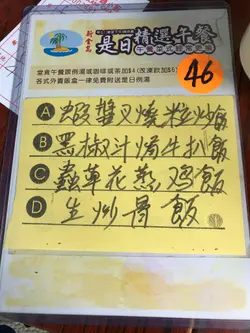 新會島
是日精選午餐
堂食午餐跟例湯或咖啡或茶加$4 (改凍飲加$6)
各式外賣飯盒一律免費附送是日例湯
46
A 蝦醬叉燒粒炒飯
B 黑椒汁焗牛扒飯
C 蟲草花蒸鸡飯
D 生炒骨飯